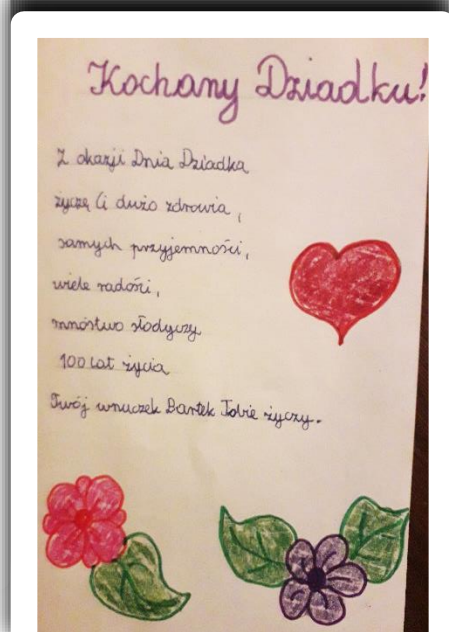 Kochany Dziadku!
Z okazji Dnia Dziadka
życzę Ci dużo zdrowia,
samych przyjemności,
wiele radości,
mnóstwo słodyczy
100 lat życia
Twój wnuczek Bartek Tobie życzy.